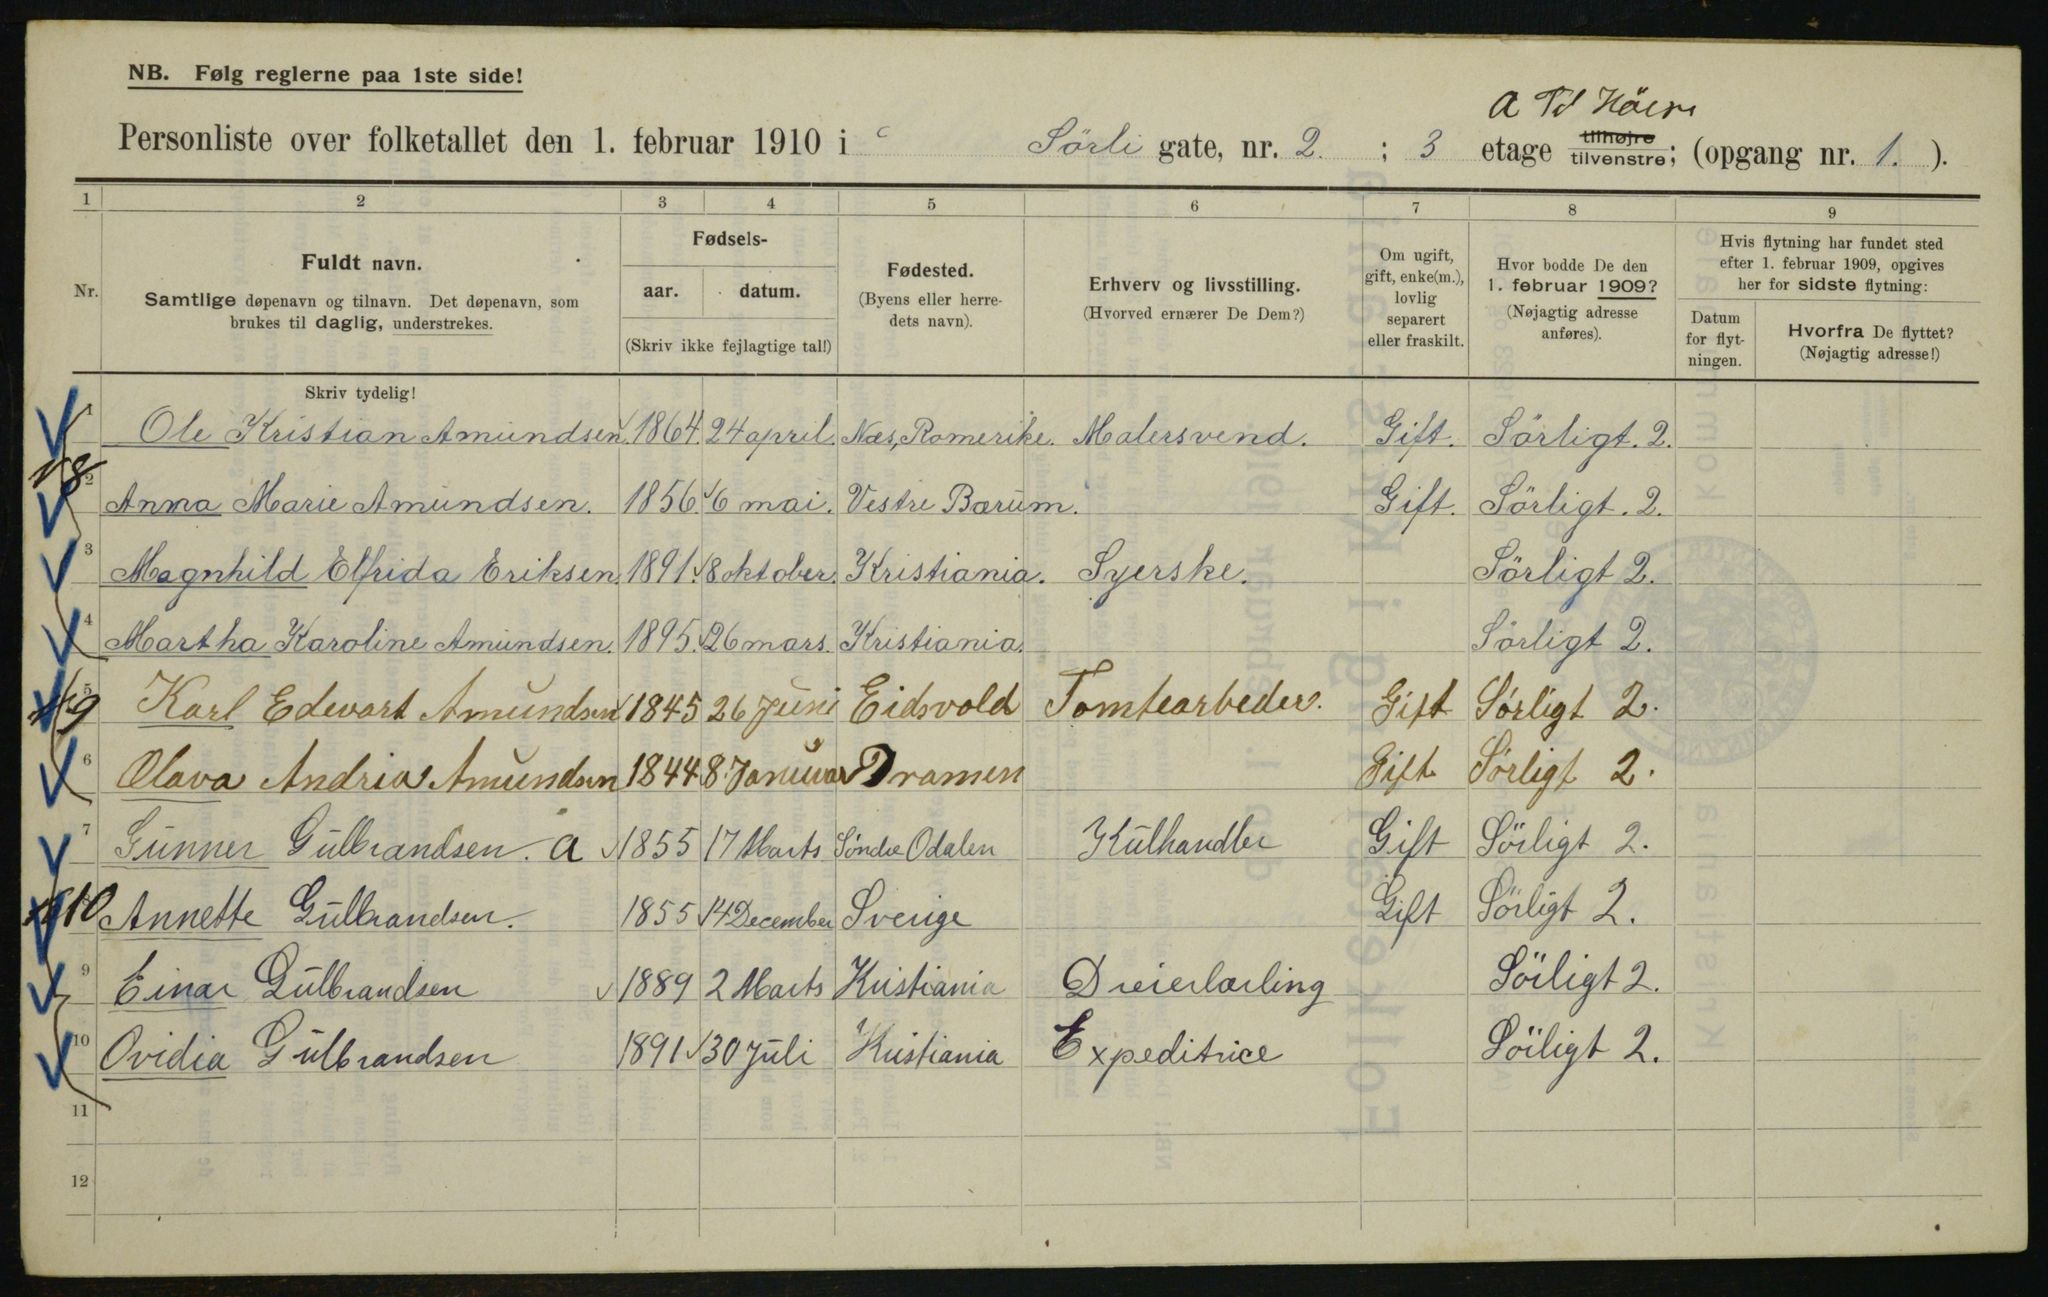 NB. Følg reglerne paa 1ste side!
a Til Höire
Personliste over folketallet den 1. februar 1910 i Sörli gate, nr. 2. ; 3 etage tilhøjre tilvenstre; (opgang nr. 1. ).
1 2 3 4 5 6 7 8 9
Nr.
Fuldt navn.
Samtlige døpenavn og tilnavn. Det døpenavn, som
brukes til daglig, understrekes.
Fødsels-
aar. datum.
(Skriv ikke fejlagtige tal!)
Fødested.
(Byens eller herre-
dets navn).
Erhverv og livsstilling.
(Hvorved ernærer De Dem?)
Om ugift,
gift, enke(m.),
lovlig
separert
eller fraskilt.
Hvor bodde De den
1. februar 1909?
(Nøjagtig adresse
anføres).
Hvis flytning har fundet sted
efter 1. februar 1909, opgives
her for sidste flytning:
Datum
for flyt-
ningen.
Hvorfra De flyttet?
(Nøjagtig adresse!)
Skriv tydelig!
1 Ole Kristian Amundsen. 1864. 24 april. Næs, Romerike. Malersvend. Gift. Sörligt. 2.
2 Anna Marie Amundsen. 1856. 6 mai. Vestre Bærum. Gift. Sörligt. 2.
3 Magnhild Elfrida Eriksen. 1891. 8 oktober. Kristiania. Syerske. Sörligt 2.
4 Martha Karoline Amundsen. 1895. 26 mars. Kristiania. Sörligt 2.
5 Karl Edevart Amundsen 1845 26 Juni Eidsvold Tomtearbeder. Gift Sórligt 2.
6 Olava Andria Amundsen 1844 8. Januar Dramen Gift Sórligt 2.
7 Gunner Gulbrandsen. a 1855 17 Marts Söndre Odalen Kulhandler Gift Sörligt 2.
10 Annette Gulbrandsen. 1855 14 December Sverige Gift Sörligt 2.
9 Einar Gulbrandsen 1889 2 Marts Kristiania Dreierlærling Sörligt 2.
10 Ovidia Gulbrandsen 1891 30 Juli Kristiania Expeditrice Sörligt 2.
11
12